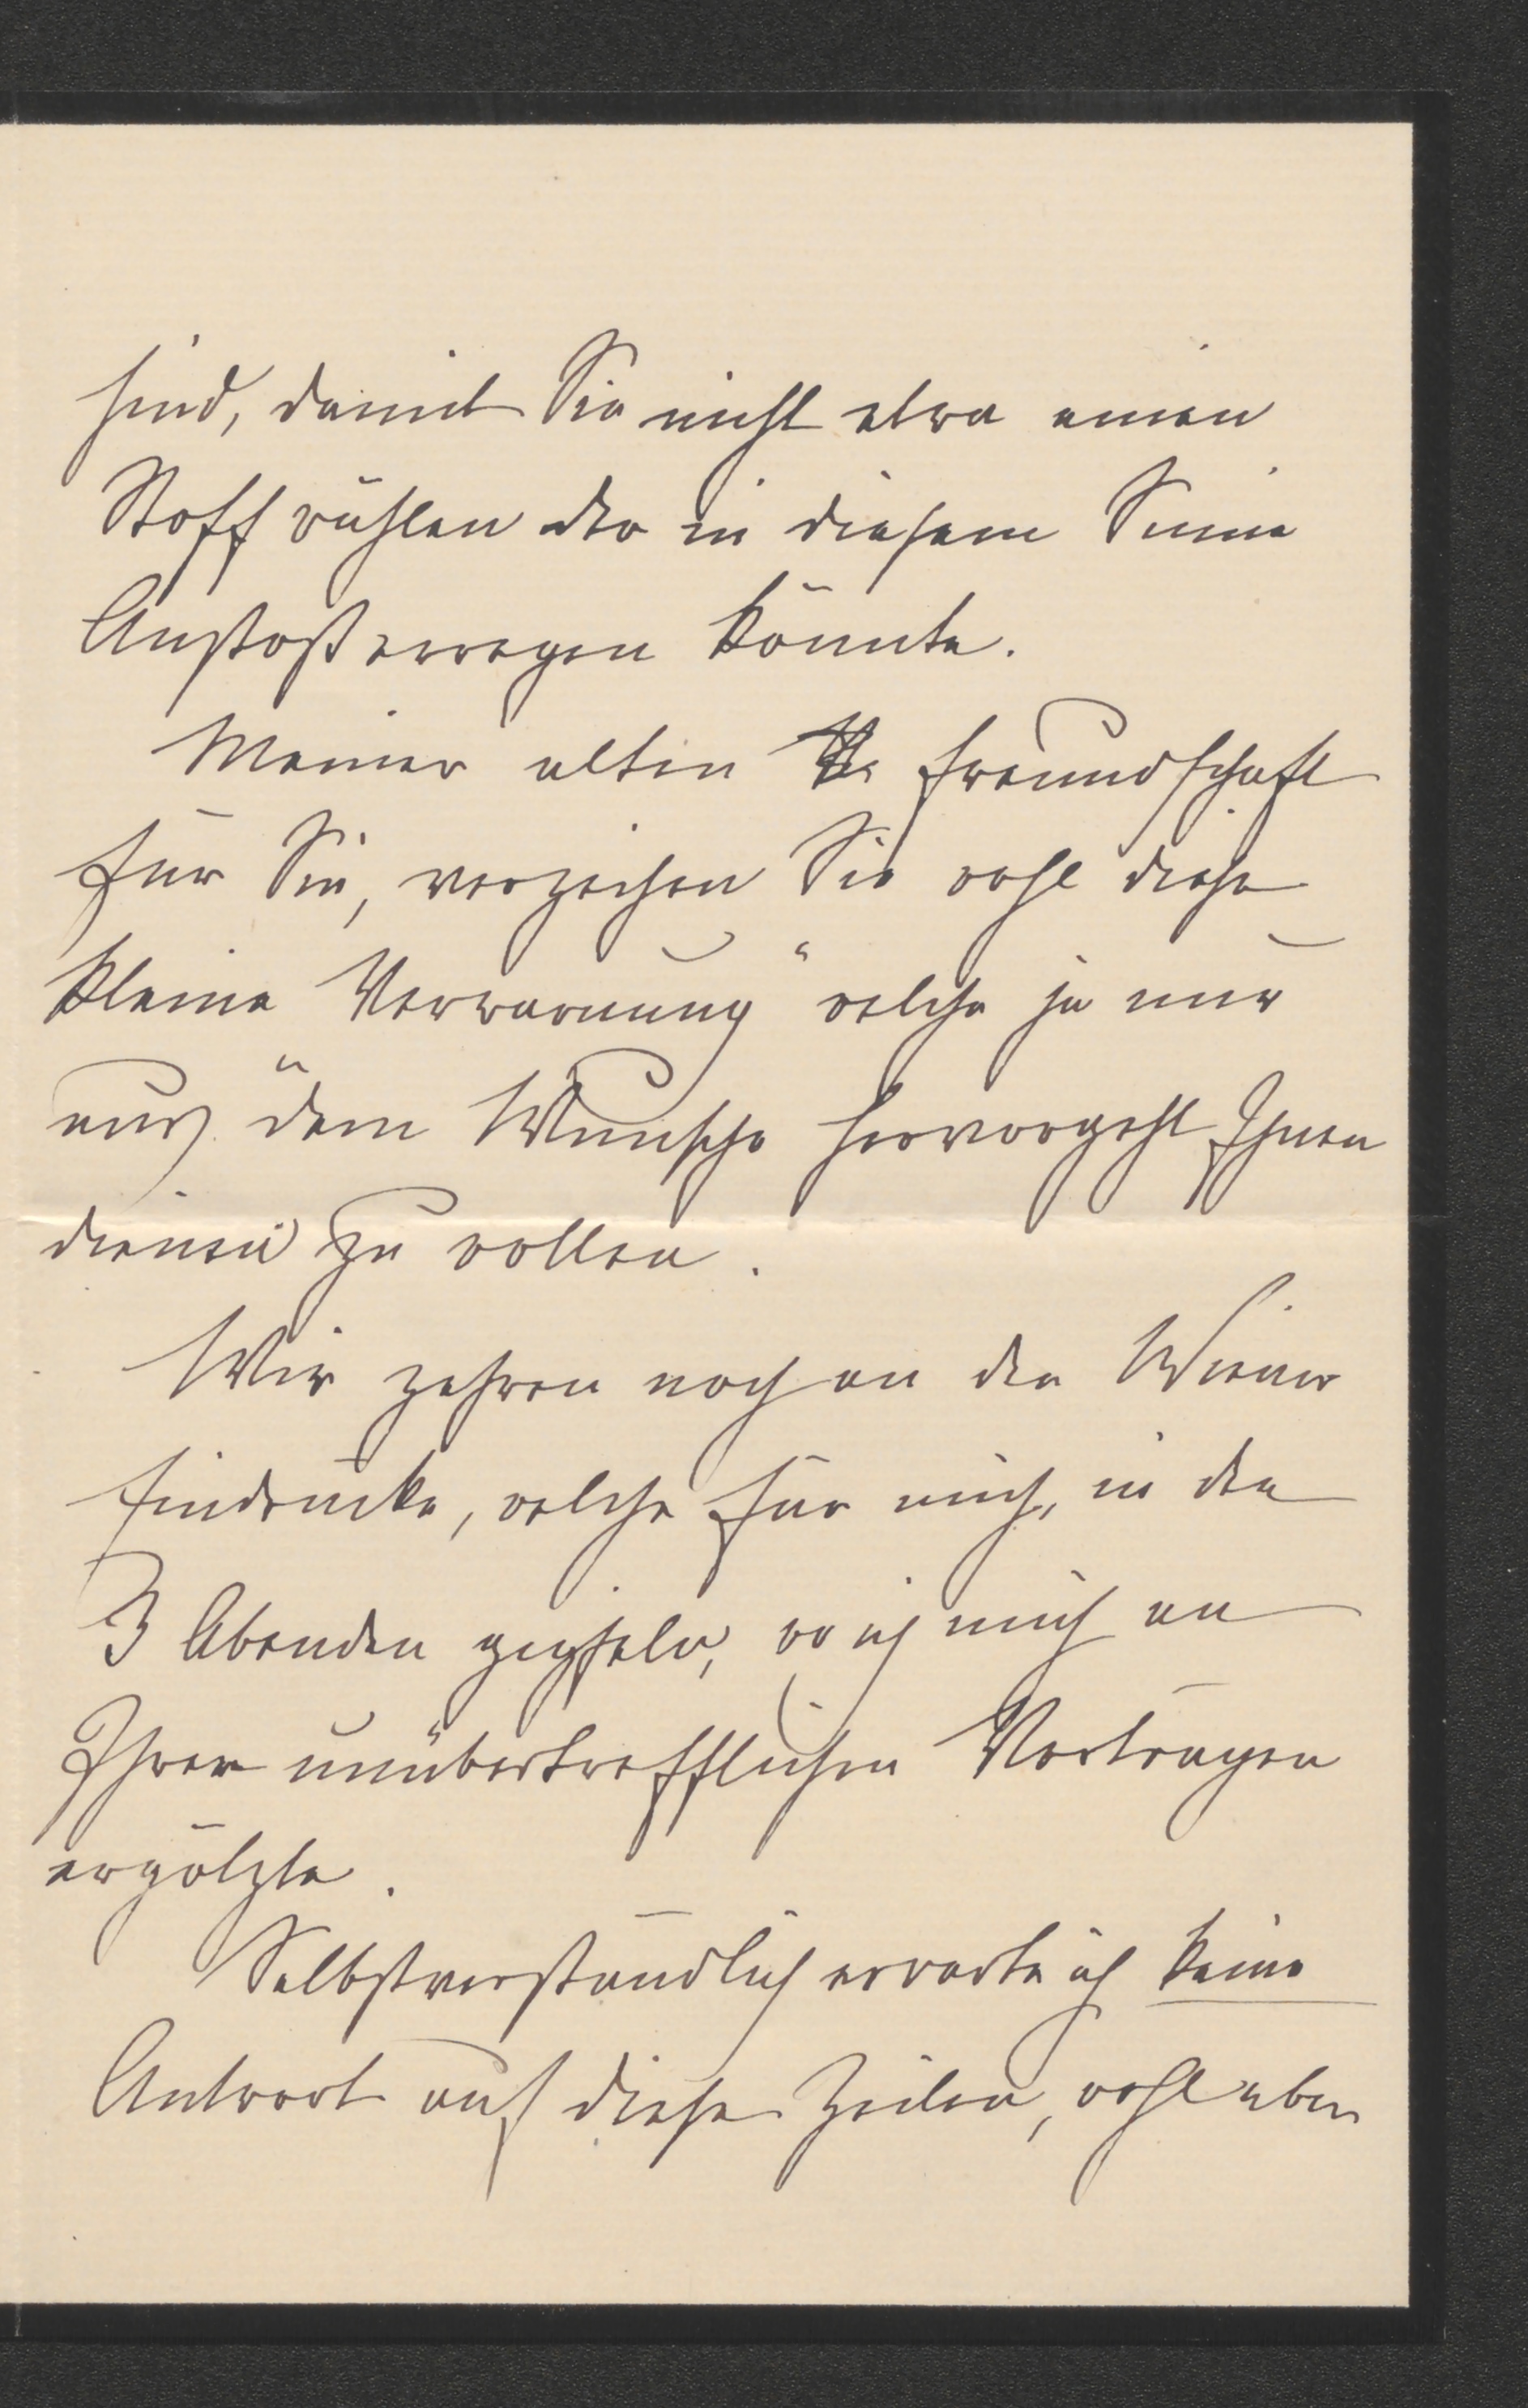 sind, damit Sie nicht etwa einen
Stoff wählen der in diesem Sinne
Anstoß erregen könnte.
Meiner alten Freundschaft
für Sie, verzeihen Sie wohl diese
kleine Verwarnung" welche ja nur
aus dem Wunsche hervorgeht Ihnen
dienen zu wollen.
Wir zehren noch an den Wiener
Eindrücke, welche für mich, in den
3 Abenden gipfeln, wo ich mich an
Ihren unübertrefflichen Vorträgen
ergötzte.
Selbstverständlich erwarte ich keine
Antwort auf diese Zeilen, wohl aber